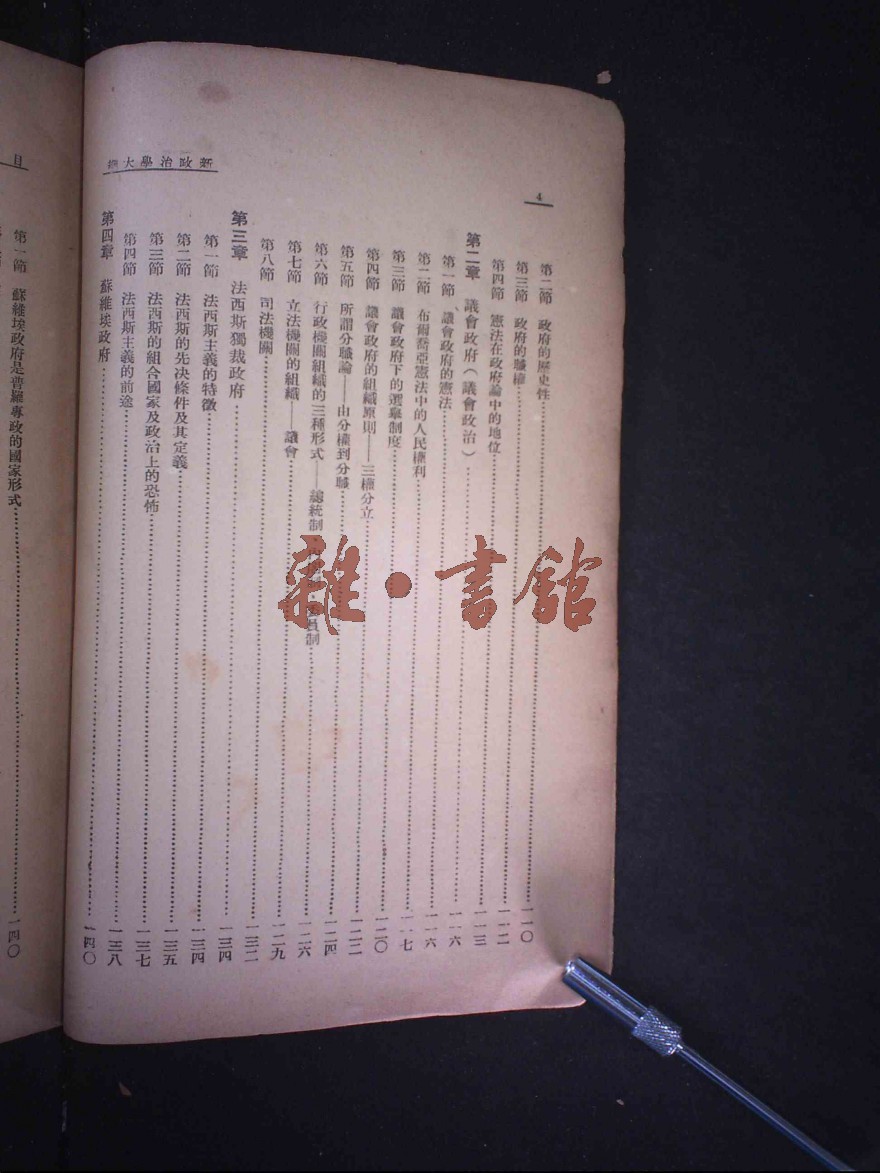 4
新政治學大綱
第二節 政府的歷史性……一一〇
第三節 政府的職權……一一二
第四節 憲法在政府論中的地位……一一三
第二章 議會政府(議會政治)……一一六
第一節 議會政府的憲法……一一六
第二節 布爾喬亞憲法中的人民權利……一一七
第三節 議會政府下的選舉制度……一二〇
第四節 議會政府的組織原則——三權分立……一二二
第五節 所謂分職論——由分權到分職……一二四
第六節 行政機關組織的三種形式——總統制 內閣制 委員制……一二六
第七節 立法機關的組織——議會……一二九
第八節 司法機關……一三二
第三章 法西斯獨裁政府……一三四
第一節 法西斯主義的特徵……一三四
第二節 法西斯的先決條件及其定義……一三五
第三節 法西斯的組合國家及政治上的恐怖……一三七
第四節 法西斯主義的前途……一三八
第四章 蘇維埃政府……一四〇
目
第一節 蘇維埃政府是普羅專政的國家形式……一四〇
雜·書館